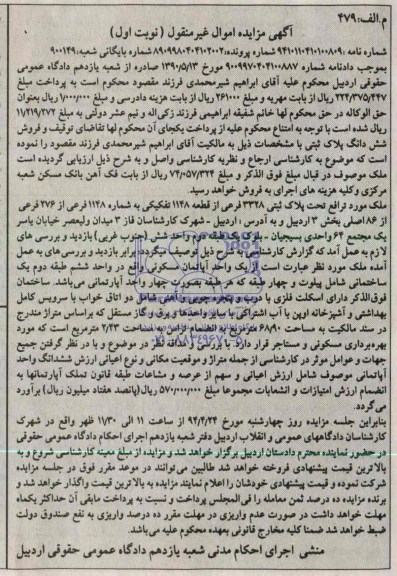 م.الف:۴۷۹
آگهی مزایده اموال غیرمنقول ( نوبت اول )
شماره نامه :۹۴۱۰۱۱۰۴۱۰۱۰۰۸۰۹ شماره پرونده:۸۹۰۹۹۸۰۴۰۴۱۰۲۰۰۲ شماره بایگانی شعبه:۹۰۰۱۴۹
بموجب دادنامه شماره ۹۰۰۹۹۷۰۴۰۴۱۰۰۸۸۷ مورخ ۱۳۹۰/۵/۱۳ صادره از شعبه یازدهم دادگاه عمومی
حقوقی اردبیل محکوم علیه آقای ابراهیم شیرمحمدی فرزند مقصود محکوم است به پرداخت مبلغ
۲۲۴/۳۷۵/۴۴۷ ریال از بابت مهریه و مبلغ ۲۶۱۰۰۰ ریال از بابت هزینه دادرسی و مبلغ ۱/۰۰۰/۰۰۰ ریال بعنوان
حق الوکاله در حق محکوم لها خانم شفیقه ابراهیمی فرزند زکی اله و نیم عشر دولتی به مبلغ ۱۱/۲۱۹/۲۷۲
ریال شده است با توجه به امتناع محکوم علیه از پرداخت یکجای آن محکوم لها تقاضای توقیف و فروش
شش دانگ پلاک ثبتی با مشخصات ذیل به مالکیت آقای ابراهیم شیرمحمدی فرزند مقصود را نموده
است که موضوع به کارشناسی ارجاع و نظریه کارشناسی واصل و به شرح ذیل ارزیابی گردیده است
ملک موصوف در قبال مبلغ فوق الذکر و مبلغ ۷۴/۰۵۷/۳۲۴ ریال از بابت فک آهن بانک مسکن شعبه
مرکزی وکلیه هزینه های اجرای به فروش خواهد رسید.
ملک مورد ترافع تحت پلاک ثبتی ۳۳۲۸ فرعی از قطعه ۱۱۴۸ تفکیکی به شماره ۱۱۴۸ فرعی از ۲۷۶ فرعی
از ۸۶ اصلی بخش ۳ اردبیل و به آدرس : اردبیل - شهرک کارشناسان فاز ۳ میدان ولیعصر خیابان یاسر
یک مجتمع ۶۴ واحدی بسیجیان - بلوک یک طبقه دوم واحد شش (جنوب غربی) بازدید و بررسی های
لازم به عمل آمد که گزارش کارشناسی به شرح ذیل توصیف میگردد: برابر بازدید و بررسی های به عمل
آمده ملک مورد نظر عبارت است از یک واحد آپارتمان مسکونی واقع در واحد ششم طبقه دوم یک
ساختمانی شامل پیلوت و چهار طبقه که هر طبقه بصورت چهار واحد آپارتمانی می‌باشد. ساختمان
فوق الذکر دارای اسکلت فلزی با درب و پنجره چوبی و آهنی شامل دو اتاق خواب با سرویس کامل
بهداشتی و آشپزخانه اوپن با آب اشتراکی با سایر واحدها و برق و گاز مستقل که براساس متراژ مندرج
در سند مالکیت به مساحت ۶۸/۹۰ مترمربع به انضمام تراس به مساحت ۲/۴۳ مترمربع است که مورد
بهره‌برداری مسکونی و مستاجر قرار دارد. با بررسی و مداقه نظر در موضوع و با در نظر گرفتن جمیع
جهات و عوامل موثر در کارشناسی از جمله متراژ و موقعیت مکانی و نوع اعیانی ارزش ششدانگ واحد
آپاتمانی موصوف شامل ارزش اعیانی و سهم از عرصه و مشاعات طبقه قانون تملک آپارتمانها به
انضمام ارزش امتیازات و انشعابات مجموعا مبلغ ۵۷۰/۰۰۰/۰۰۰ ریال(پانصد هفتاد میلیون ریال) برآورد
می‌گردد.
بنابراین جلسه مزایده روز چهارشنبه مورخ ۹۴/۴/۲۴ از ساعت ۱۱ الی ۱۱/۳۰ ظهر واقع در شهرک
کارشناسان دادگاههای عمومی و انقلاب اردبیل دفتر شعبه یازدهم اجرای احکام دادگاه عمومی حقوقی
در حضور نماینده محترم دادستان اردبیل برگزار خواهد شد و مزایده از مبلغ معینه کارشناسی شروع و به
بالاترین قیمت پیشنهادی فروخته خواهد شد طالبین می‌توانند در موعد مقرر فوق در جلسه مزایده
شرکت نموده و قیمت پیشنهادی خودشان را اعلام نمایند مزایده به بالاترین قیمت واگذار خواهد شد و
برنده مزایده ده درصد ثمن معامله را فی المجلس پرداخت و نسبت به پرداخت مابقی آن حداکثر یکماه
مهلت خواهد داشت در صورت عدم واریزی در مهلت مقرر ده درصد واریزی به نفع صندوق دولت
ضبط خواهد شد ضمنا کلیه مخارج قانونی بعهده محکوم علیه می‌باشد.
منشی اجرای احکام مدنی شعبه یازدهم دادگاه عمومی حقوقی اردبیل